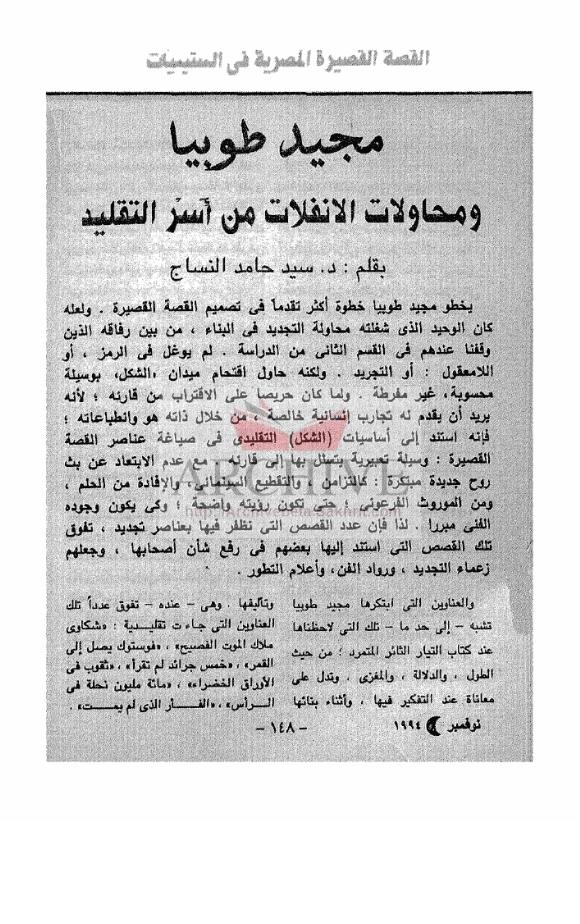 القصة القصيرة المصرية فى الستينيات
مجيد طوبيا
ومحاولات الانفلات من أسْر التقليد
بقلم : د. سيد حامد النساج
يخطو مجيد طوبيا خطوة أكثر تقدماً فى تصميم القصة القصيرة . ولعله
كان الوحيد الذى شغلته محاولة التجديد فى البناء ، من بين رفاقه الذين
وقفنا عندهم فى القسم الثانى من الدراسة . لم يوغل فى الرمز ، أو
اللامعقول : أو التجريد . ولكنه حاول اقتحام ميدان «الشكل» بوسيلة
محسوبة، غير مفرطة . ولما كان حريصا على الاقتراب من قارئه ؛ لأنه
يريد أن يقدم له تجارب إنسانية خالصة ، من خلال ذاته هو وانطباعاته ؛
فإنه استند إلى أساسيات (الشكل) التقليدى فى صياغة عناصر القصة
القصيرة : وسيلة تعبيرية يتسلل بها إلى قارئه . مع عدم الابتعاد عن بث
روح جديدة مبتكرة : كالتزامن ، والتقطيع السينمائى، والإفادة من الحلم ،
ومن الموروث الفرعونى ؛ حتى تكون رؤيته واضحة ؛ وكى يكون وجوده
الفنى مبررا . لذا فإن عدد القصص التى نظفر فيها بعناصر تجديد ، تفوق
تلك القصص التى استند إليها بعضهم فى رفع شأن أصحابها ، وجعلهم
زعماء التجديد ، ورواد الفن، وأعلام التطور .
والعناوين التى ابتكرها مجيد طوبيا
تشبه – إلى حد ما – تلك التى لاحظناها
عند كتاب التيار الثائر المتمرد ؛ من حيث
الطول ، والدلالة ، والمغزى . وتدل على
معاناة عند التفكير فيها ، وأثناء بنائها
وتأليفها . وهى – عنده – تفوق عدداً تلك
العناوين التى جاءت تقليدية : «شكاوى
ملاك الموت الفصيح» ، «فوستوك يصل إلى
القمر» ، «خمس جرائد لم تقرأ» ، «ثقوب فى
الأوراق الخضراء» ، «مائة مليون نحلة فى
الرأس» ، «الفأر الذى لم يمت» .
نوفمبر ١٩٩٤
– ١٤٨ –
ARCHIVE